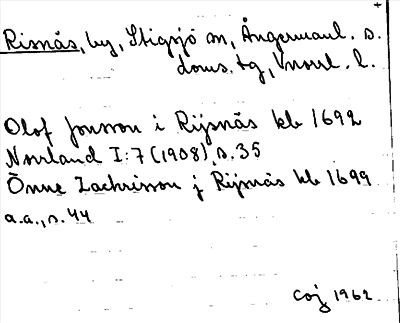 Risnäs, by, Stigsjö sn, Ångermanl. s.
doms. tg, Vnorrl. l.
Olof Jonsson i Rijsnäs kb 1692
Norrland I:7 (1908), s. 35
Önne Zachrisson j Rijsnäs kb 1699
a.a., s. 44
Coj 1962